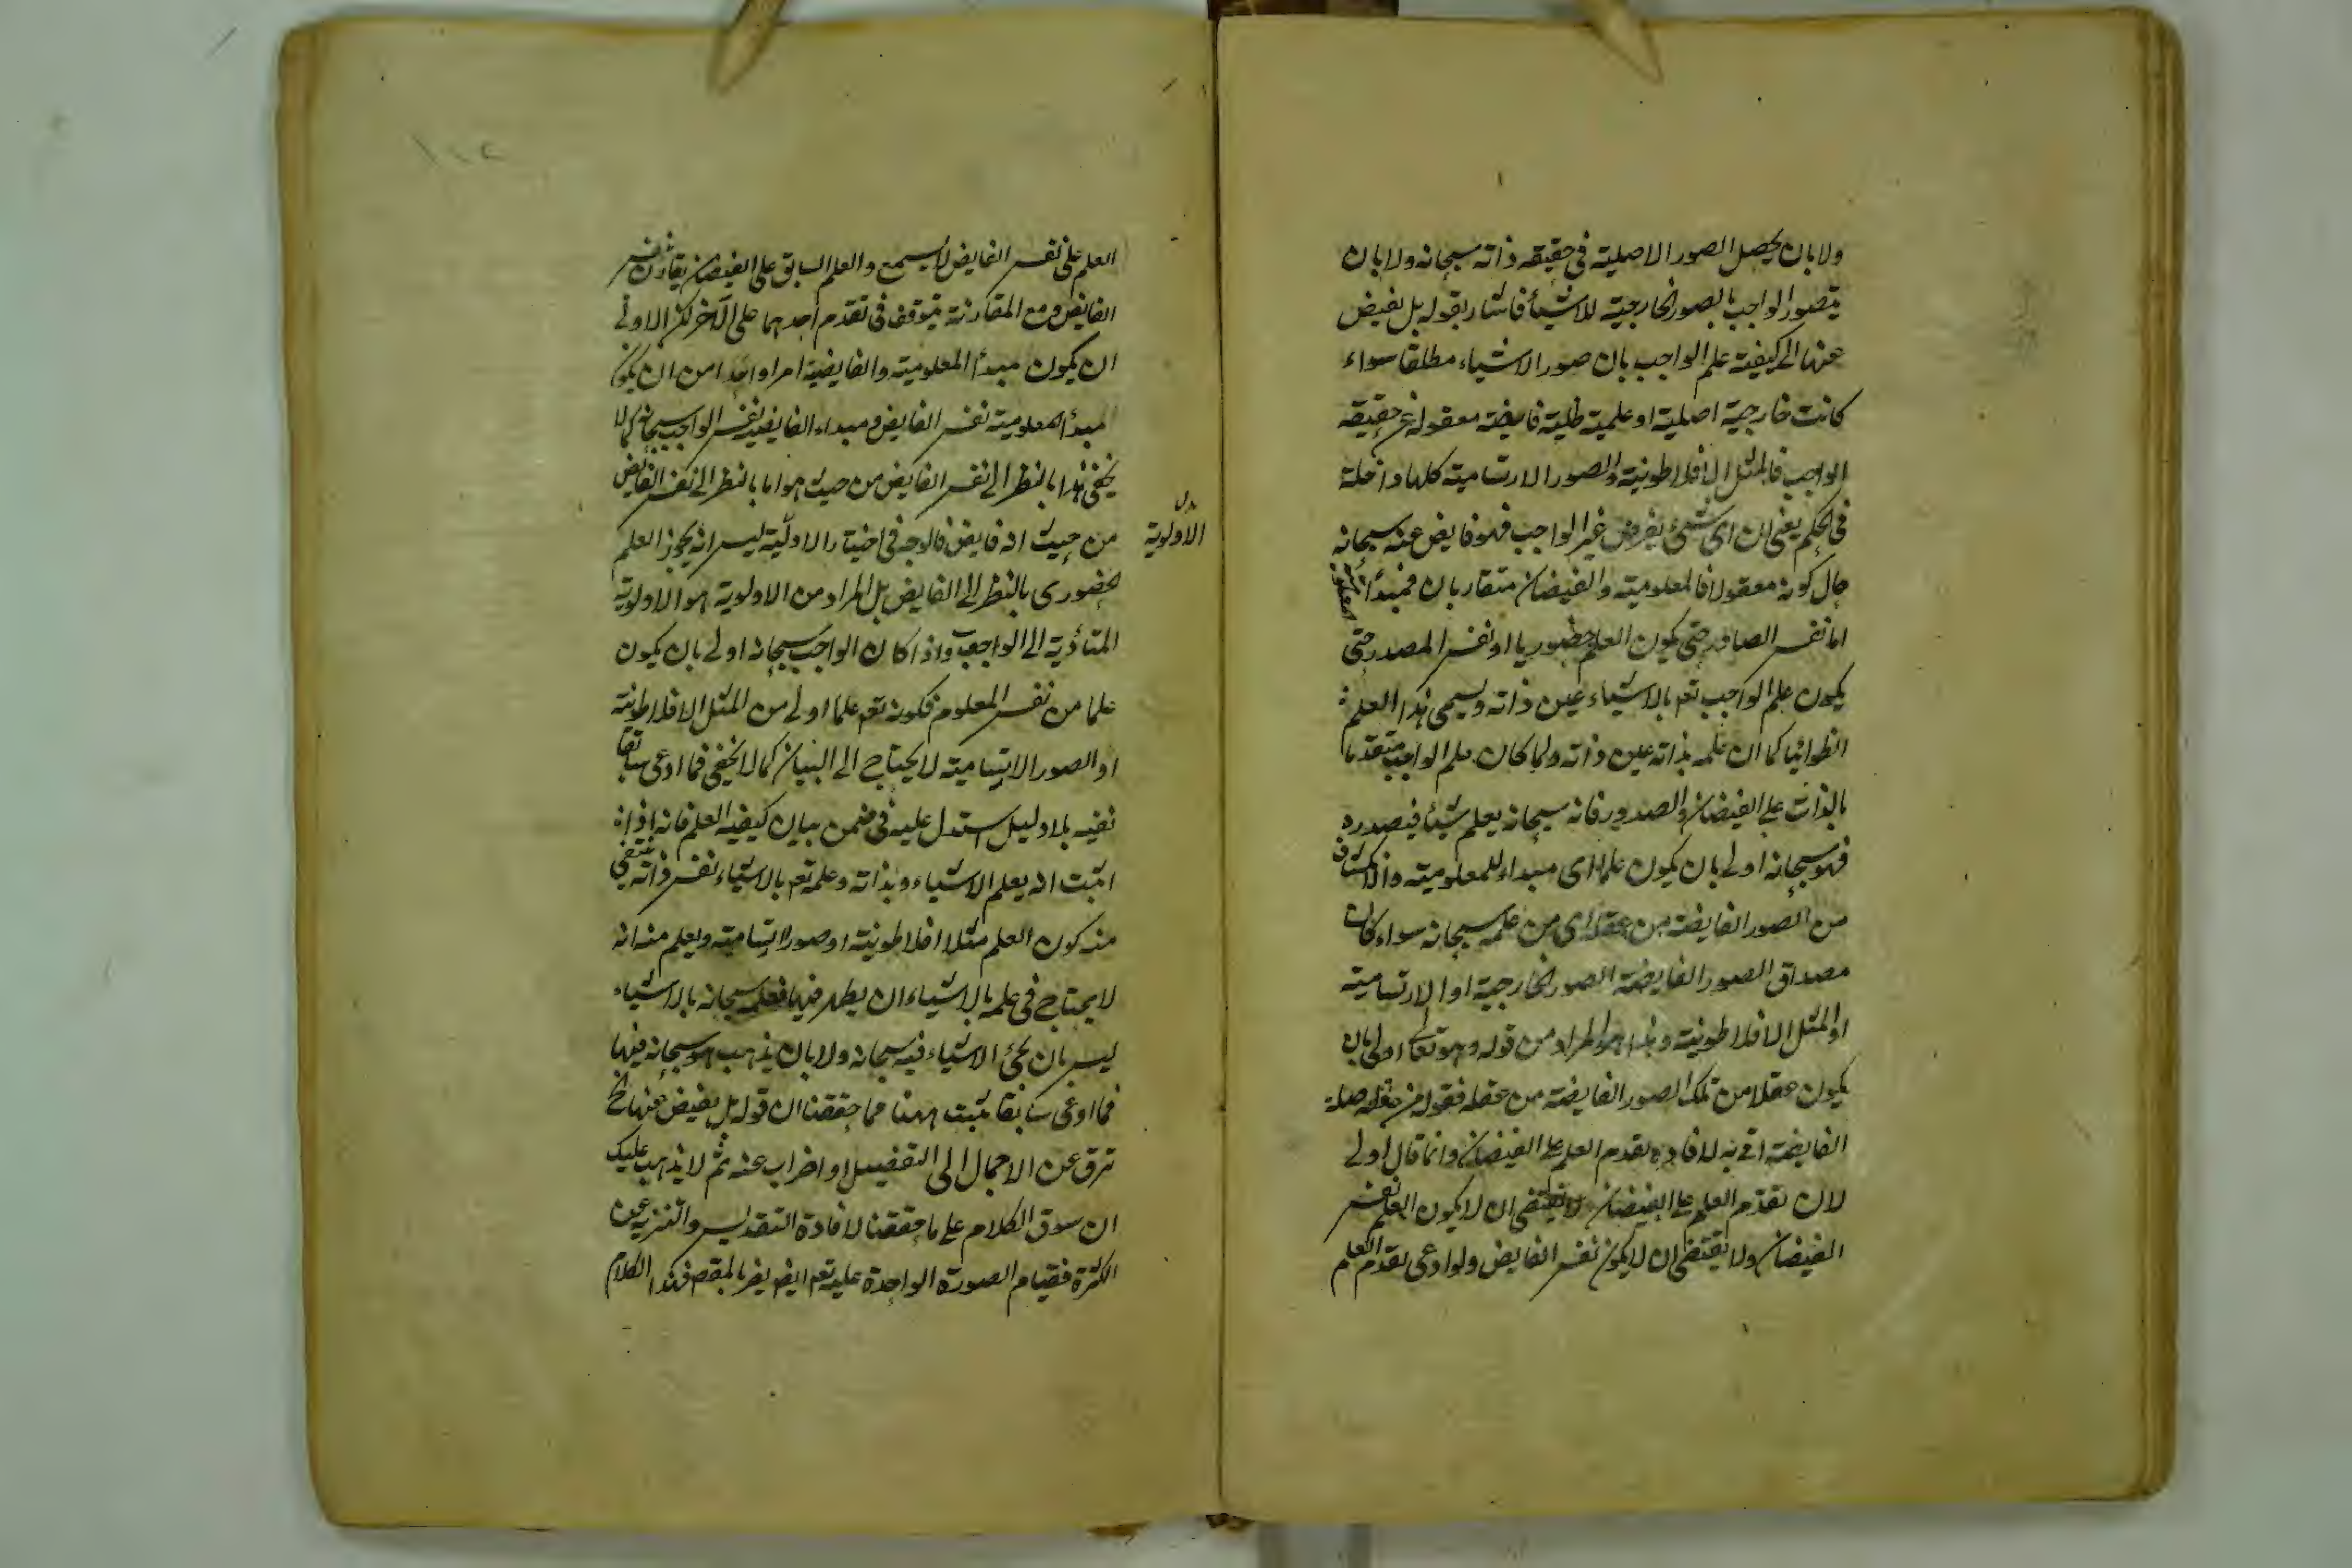 ولا بان يحصل الصور الاصلية فى حقيقه ذاته سبحانه ولا بان
يتصور الواجب بالصور الخارجية للاشياء فاشار بقوله بل يفيض
عنها الى كيفية علم الواجب بان صور الاشياء مطلقا سواء
كانت خارجية اصلية او علمية ظلية فايضة معقولة عن حقيقه
الواجب فالمثل الافلاطونية والصور الارتسامية كلها داخلة
فى الحكم يعنى ان اى شيئ يفرض غير الواجب فهو فايض عنه سبحانه
حال كونه معقولا فالمعلومية والفيضان متقاربان فمبدأ المعلومية
اما نفس الصادر حتى يكون العلم حضوريا او نفس المصدر حتى
يكون علم الواجب تعم بالاشياء عين ذاته ويسمى هذا العلم
انطوائيا كما ان علمه بذاته عين ذاته ولما كان علم الواجب متقدما
بالذات على الفيضان والصدور فانه سبحانه يعلم شيئا فيصدره
فهو سبحانه اولى بان يكون علما اى مبداء للمعلومية والانكشاف
من الصور الفايضة من عقله اى من علمه سبحانه سواء كان
مصداق الصور الفايضة الصور الخارجية او الارتسامية
او المثل الافلاطونية وهذا هو المراد من قوله وهو تعالى اولى بان
يكون عقلا من تلك الصور الفايضة من عقله فقوله من عقله صلة
الفايضة اتى به لافادة تقدم العلم على الفيضان وانما قال اولى
لان تقدم العلم على الفيضان لا يقتضى ان لا يكون العلم نفس
الفيضان ولا يقتضى ان لا يكون نفس الفايض ولو ادعى تقدم العلم
العلم على نفس الفايض لا يسمع والعلم السابق على الفيضان يقارن نفس
الفايض ومع المقارنة يتوقف فى تقدم احدهما على الآخر لكن الاولى
ان يكون مبدأ المعلومية والفايضية امرا واحدا من ان يكون
مبدأ المعلومية نفس الفايض ومبداء الفايضية نفس الواجب سبحانه كما لا
يخفى هذا بالنظر الى نفس الفايض من حيث هو اما بالنظر الى نفس الفايض
من حيث انه فايض فالوجه فى اختيار الاولية ليس انه يجوز العلم
الاولوية
لحضورى بالنظر الى الفايض بل المراد من الاولوية هو الاولوية
المتأدية الى الواجب واذا كان الواجب سبحانه اولى بان يكون
علما من نفس المعلوم فكونه تعم علما اولى من المثل الافلاطونية
او الصور الارتسامية لا يحتاج الى البيان كما لا يخفى فما ادعى سابقا
نفيه بلا دليل استدل عليه فى ضمن بيان كيفية العلم فانه اذا
اثبت انه يعلم الاشياء وبذاته وعلمه تعم بالاشياء نفس ذاته ينتفى
منه كون العلم مثلا افلاطونية او صورا ارتسامية ويعلم منه انه
لا يحتاج فى علمه بالاشياء ان يظهر فيها فعلمه سبحانه بالاشياء
ليس بان يجئ الاشياء فيه سبحانه ولا بان يذهب هو سبحانه فيها
فما ادعى سابقا يثبت ههنا فما حققنا ان قوله بل يفيض عنها الخ
ترق عن الاجمال الى التفصيل او اضراب عنه ثم لا يذهب عليك
ان سوق الكلام على ما حققنا لافادة التقديس والتنزيه عن
الكثرة فقيام الصورة الواحدة عليه تعم ايض يضر بالمقصم فهكذا الكلام